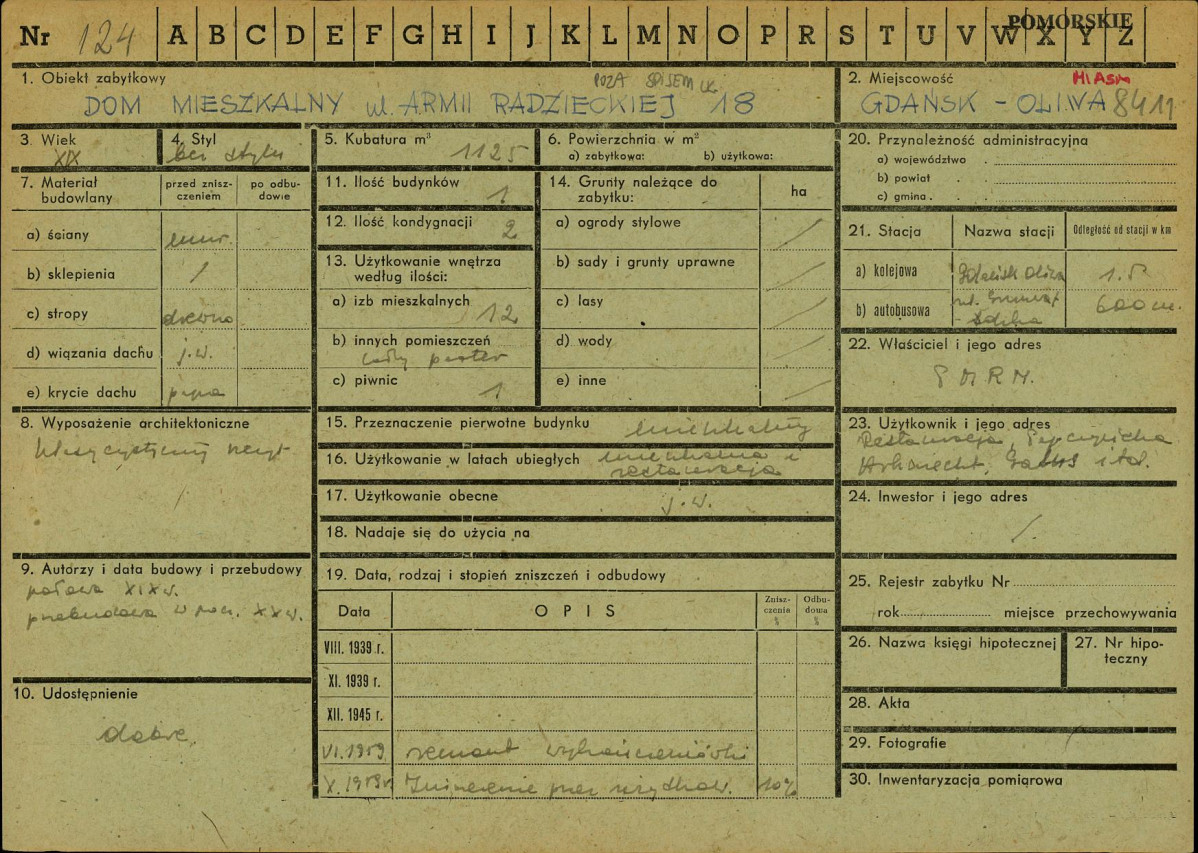 Nr 124 A B C D E F G H I J K L M N O P R S T U V W X Y Z
POMORSKIE
1. Obiekt zabytkowy
POZA SPISEM
DOM MIESZKALNY ul. ARMII RADZIECKIEJ 18
2. Miejscowość
MIASTO
GDAŃSK - OLIWA 8411
3. Wiek
XIX
4. Styl
bez stylu
5. Kubatura m³ 1125
6. Powierzchnia w m²
a) zabytkowa: b) użytkowa:
7. Materiał budowlany
przed znisz-
czeniem
po odbu-
dowie
a) ściany mur.
b) sklepienia /
c) stropy drewno
d) wiązania dachu j.w.
e) krycie dachu papa
8. Wyposażenie architektoniczne
Klasycystyczny
9. Autorzy i data budowy i przebudowy
połowa XIX w.
przebudowa w pocz. XX w.
10. Udostępnienie
dobre
11. Ilość budynków 1
12. Ilość kondygnacji 2
13. Użytkowanie wnętrza
według ilości:
a) izb mieszkalnych 12
b) innych pomieszczeń
cały parter
c) piwnic 1
14. Grunty należące do
zabytku:
ha
a) ogrody stylowe /
b) sady i grunty uprawne /
c) lasy /
d) wody /
e) inne /
15. Przeznaczenie pierwotne budynku mieszkalny
16. Użytkowanie w latach ubiegłych mieszkalna i
restauracja
17. Użytkowanie obecne j.w.
18. Nadaje się do użycia na
19. Data, rodzaj i stopień zniszczeń i odbudowy
Data OPIS
Znisz-
czenia
%
Odbu-
dowa
%
VIII. 1939 r.
XI. 1939 r.
XII. 1945 r.
VI. 1959 remont
X. 1959 r. Zniszczenie przez użytkow. 10%
20. Przynależność administracyjna
a) województwo
b) powiat
c) gmina
21. Stacja Nazwa stacji Odległość od stacji w km
a) kolejowa Gdańsk Oliwa 1.5
b) autobusowa ul. 600 m.
22. Właściciel i jego adres
P M R N.
23. Użytkownik i jego adres
Restauracja,
i in.
24. Inwestor i jego adres
/
25. Rejestr zabytku Nr
rok miejsce przechowywania
26. Nazwa księgi hipotecznej
27. Nr hipo-
teczny
28. Akta
29. Fotografie
30. Inwentaryzacja pomiarowa